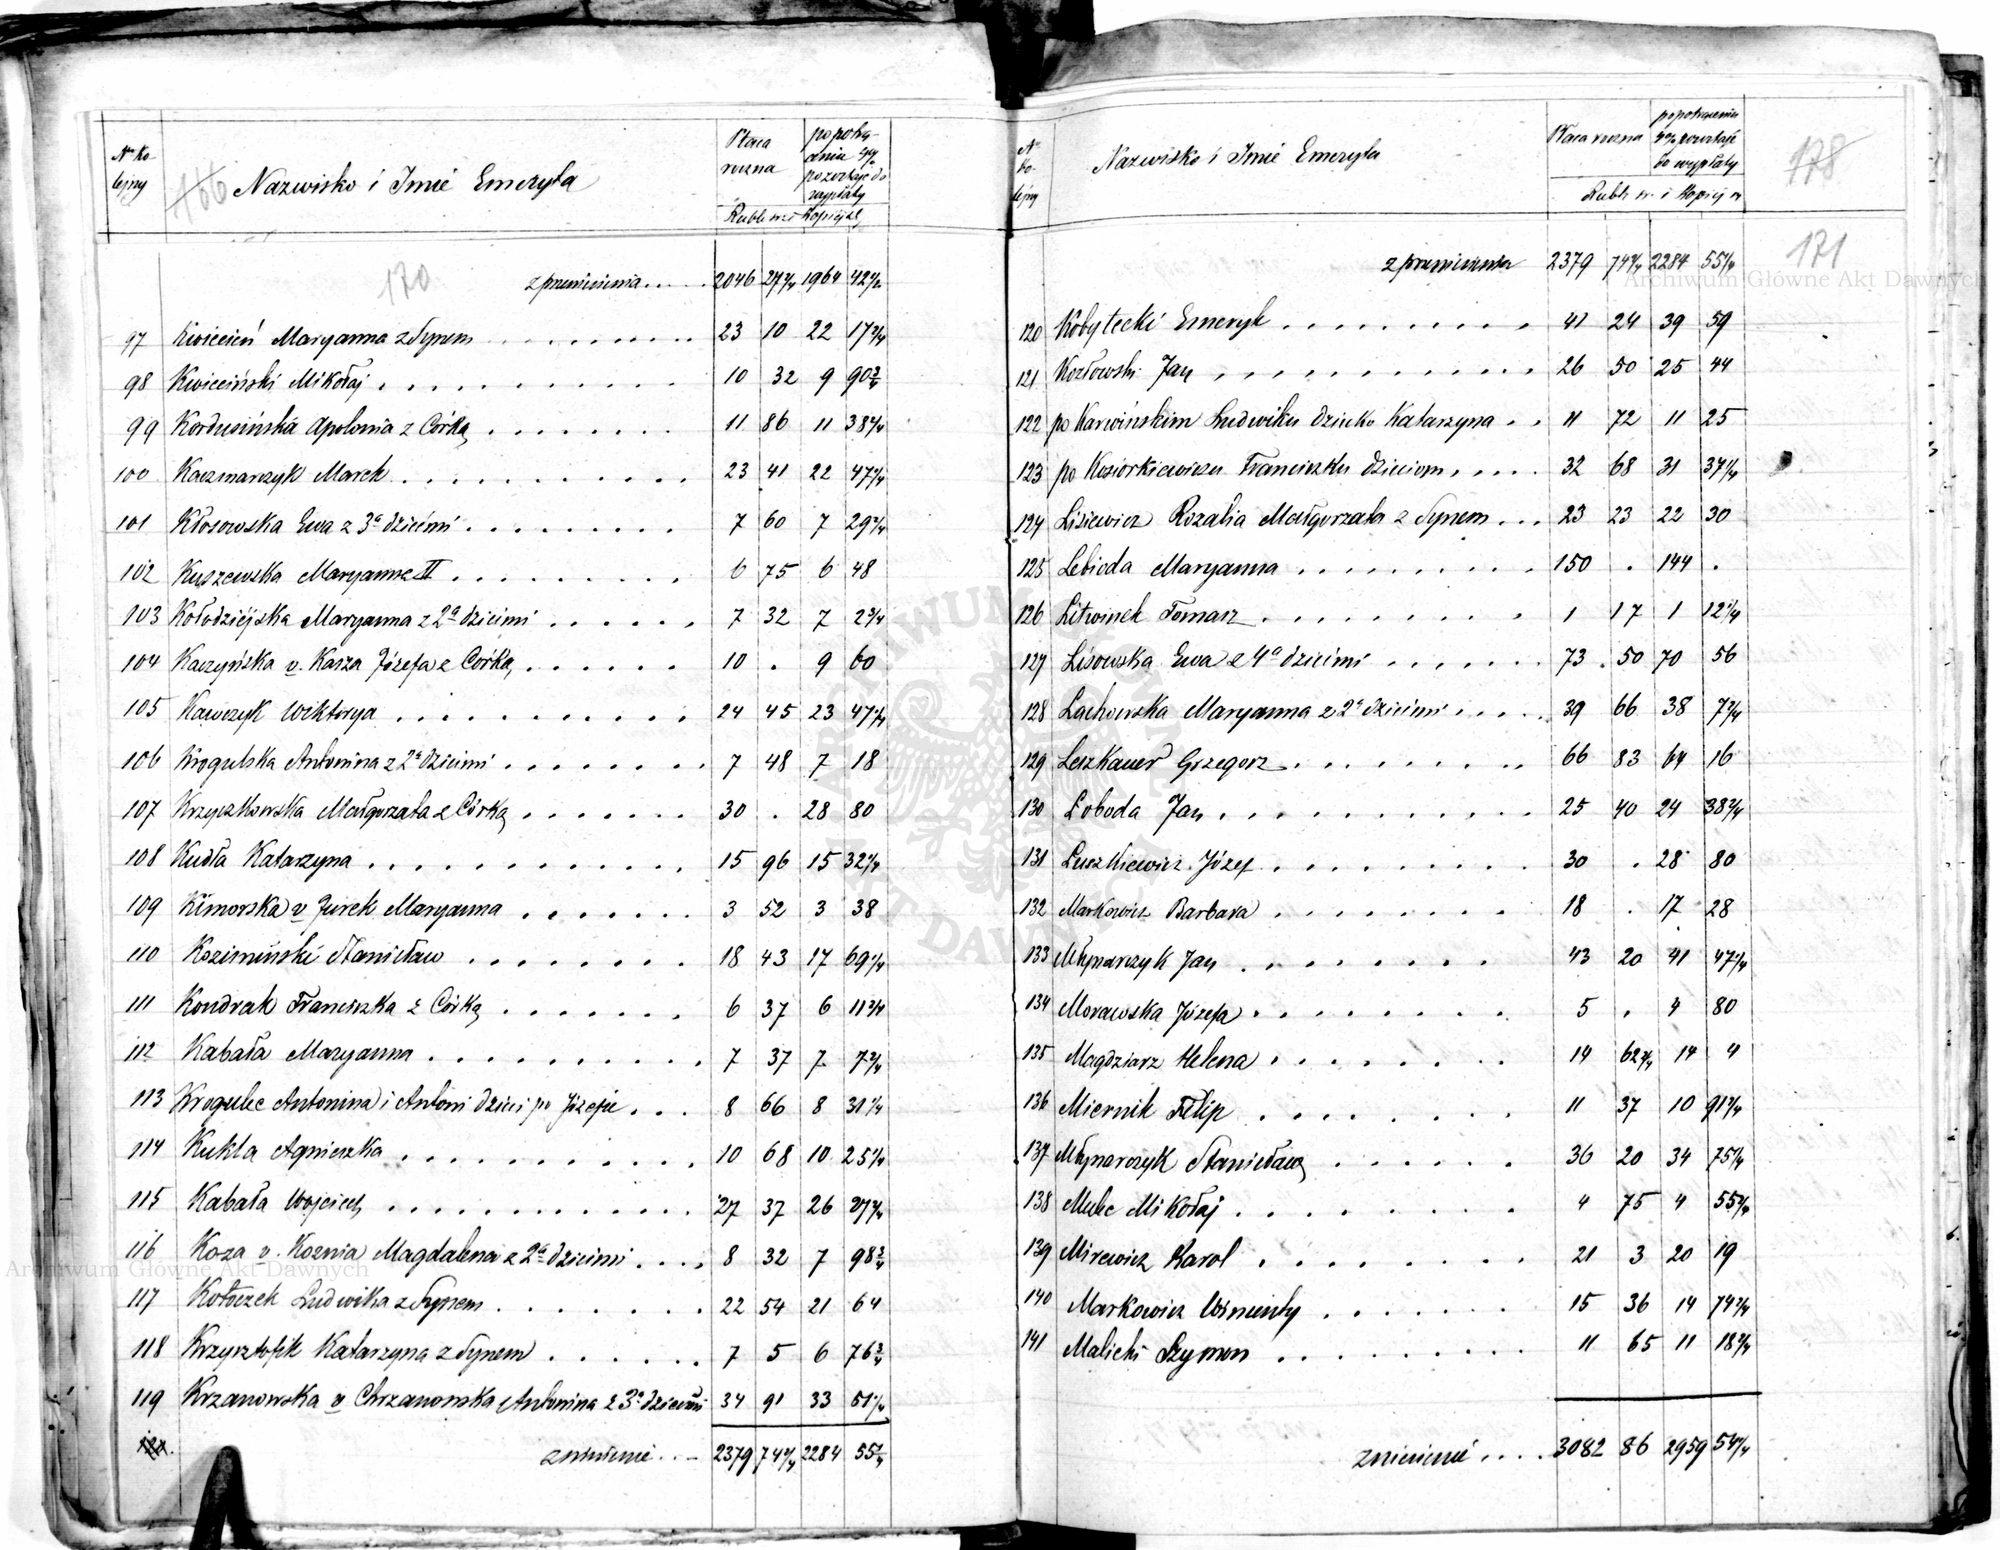 № Ko-
lejny
166
Nazwisko i Imie Emeryta
Płaca
roczna
po potrą-
ceniu 4%
pozostaje do
wypłaty
Rubli sr. i Kopiejek
170
z przeniesienia 2046 27 2/4 1964 42
97 Kwiecień Maryanna z Synem 23 10 22 17 2/4
98 Kwieciński Mikołaj 10 32 9 90 3/4
99 Kordusińska Apolonia z Córką 11 86 11 38 2/4
100 Kaczmarczyk Marek 23 41 22 47 1/4
101 Kłosowska Ewa z 3a dziećmi 7 60 7 29 2/4
102 Kuszewska Maryanna II 6 75 6 48
103 Kołodziéjska Maryanna z 2a dziećmi 7 32 7 2 3/4
104 Kaczyńska v. Kasza Józefa z Córką 10 . 9 60
105 Kawczyk Wiktorya 24 45 23 47 1/4
106 Krogulska Antonina z 2a dziećmi 7 48 7 18
107 Krzyczkowska Małgorzata z Córką 30 . 28 80
108 Kudła Katarzyna 15 96 15 32 1/4
109 Klimorska v Jurek Maryanna 3 52 3 38
110 Kozimiński Stanisław 18 43 17 69 1/4
111 Kondrak Franciszka z Córką 6 37 6 11 2/4
112 Kabała Maryanna 7 37 7 7 2/4
113 Krogulec Antonina i Antoni dzieci po Józefie 8 66 8 31 1/4
114 Kukla Agnieszka 10 68 10 25 1/4
115 Kabała Wojciech 27 37 26 27 2/4
116 Koza v. Koznia Magdalena z 2a dziećmi 8 32 7 98 3/4
117 Kołoczek Ludwika z Synem 22 54 21 64
118 Krzysztofik Katarzyna z Synem 7 5 6 76 3/4
119 Krzanowska v Chrzanowska Antonina z 3a dziećmi 34 91 33 51 1/4
zniesienie 2379 74 2/4 2284 55 1/4
№
Ko-
lejny
Nazwisko i Imie Emeryta
Płaca roczna
po potrąceniu
4% pozostaje
do wypłaty
Rubli sr. i Kopiejek
178
171
z przeniesienia 2379 74 2/4 2284 55 1/4
120 Kobyłecki Emeryk 41 24 39 59
121 Kozłowski Jan 26 50 25 44
122 po Karwińskim Ludwiku dziecko Katarzyna 11 72 11 25
123 po Koziorkiewiczu Franciszku dzieciom 32 68 31 37 1/4
124 Lisiewicz Rozalia Małgorzata z Synem 23 23 22 30
125 Lebioda Maryanna 150 . 144 .
126 Litwinek Tomasz 1 17 1 12 1/4
127 Lisowska Ewa z 4a dziećmi 73 50 70 56
128 Lachowska Maryanna z 2a dziećmi 39 66 38 7 2/4
129 Leszkauer Grzegorz 66 83 64 16
130 Łoboda Jan 25 40 24 38 2/4
131 Luszkiewicz Józef 30 . 28 80
132 Markowicz Barbara 18 . 17 28
133 Młynarczyk Jan 43 20 41 47 1/4
134 Morawska Józefa 5 . 4 80
135 Magdziarz Helena 14 62 2/4 14 4
136 Miernik Filip 11 37 10 91 2/4
137 Młynarczyk Stanisław 36 20 34 75 1/4
138 Mulec Mikołaj 4 75 4 55 2/4
139 Mirewicz Karol 21 3 20 19
140 Markowicz Wincenty 15 36 14 74 2/4
141 Malicki Szymon 11 65 11 18 2/4
zniesienie 3082 86 2959 54 1/4
Archiwum Główne Akt Dawnych
Archiwum Główne Akt Dawnych
ARCHIWUM GŁÓWNE AKT DAWNYCH